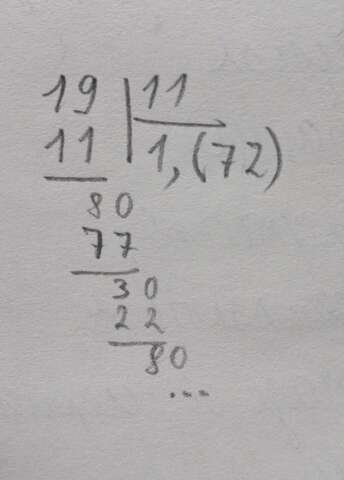 19 11
11 1,(72)
80
77
30
22
80
...